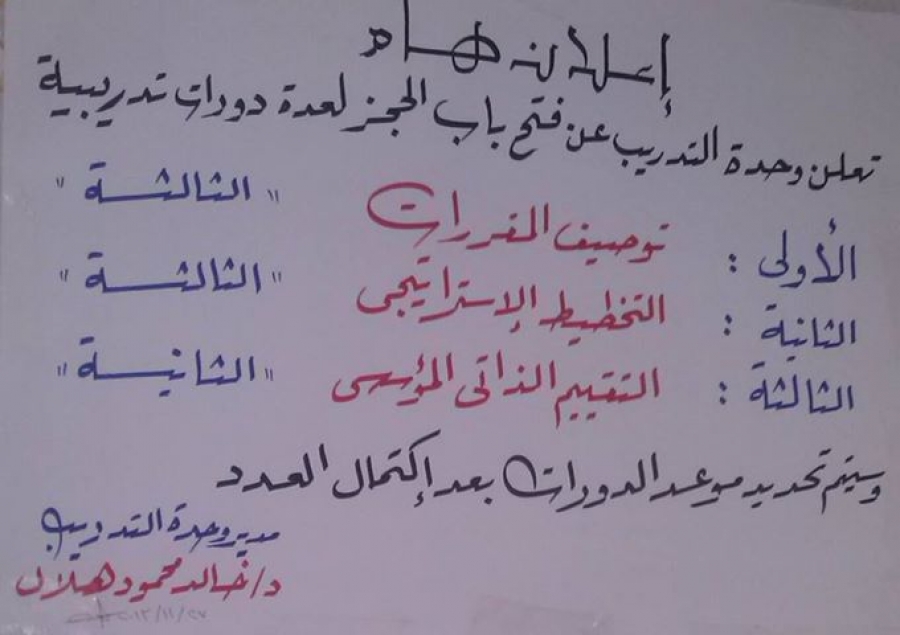 إعلان هام
تعلن وحدة التدريب عن فتح باب الحجز لعدة دورات تدريبية
الأولى : توصيف المقررات " الثالثة "
الثانية : التخطيط الإستراتيجى " الثالثة "
الثالثة : التقييم الذاتى المؤسسى " الثانية "
وسيتم تحديد موعد الدورات بعد إكتمال العدد
مدير وحدة التدريب
د/ خالد محمود هلال